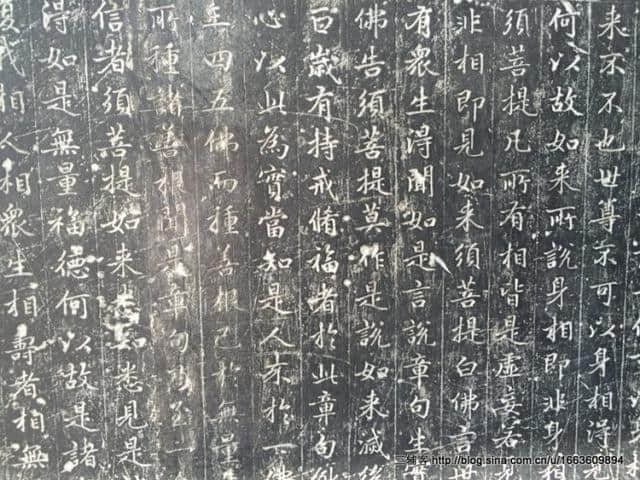 来不不也世尊不可以身相得見
何以故如来所說身相即非身相
須菩提凡所有相皆是虚妄若
非相即見如来須菩提白佛言
有衆生得聞如是言說章句生
佛告須菩提莫作是說如来滅後
百歲有持戒脩福者於此章句
心以此為實當知是人不於一佛
三四五佛而種善根已於無量
所種諸善根聞是章句乃至一
信者須菩提如来悉知悉見是
得如是無量福德何以故是諸
復我相人相衆生相壽者相無
http://blog.sina.com.cn/u/1663609894